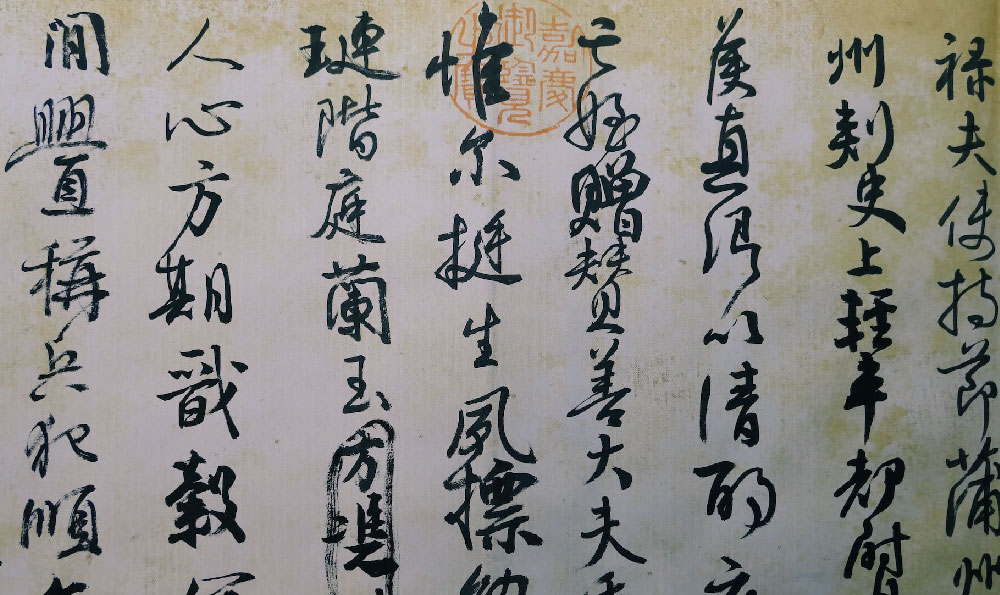 禄夫使持節蒲州
州刺史上輕車都尉
侯真卿以清酌
亡姪贈贊善大夫
惟爾挺生夙標幼
璉階庭蘭玉方憑
人心方期戩穀
閒舋直稱兵犯順
嘉慶御覽之寶